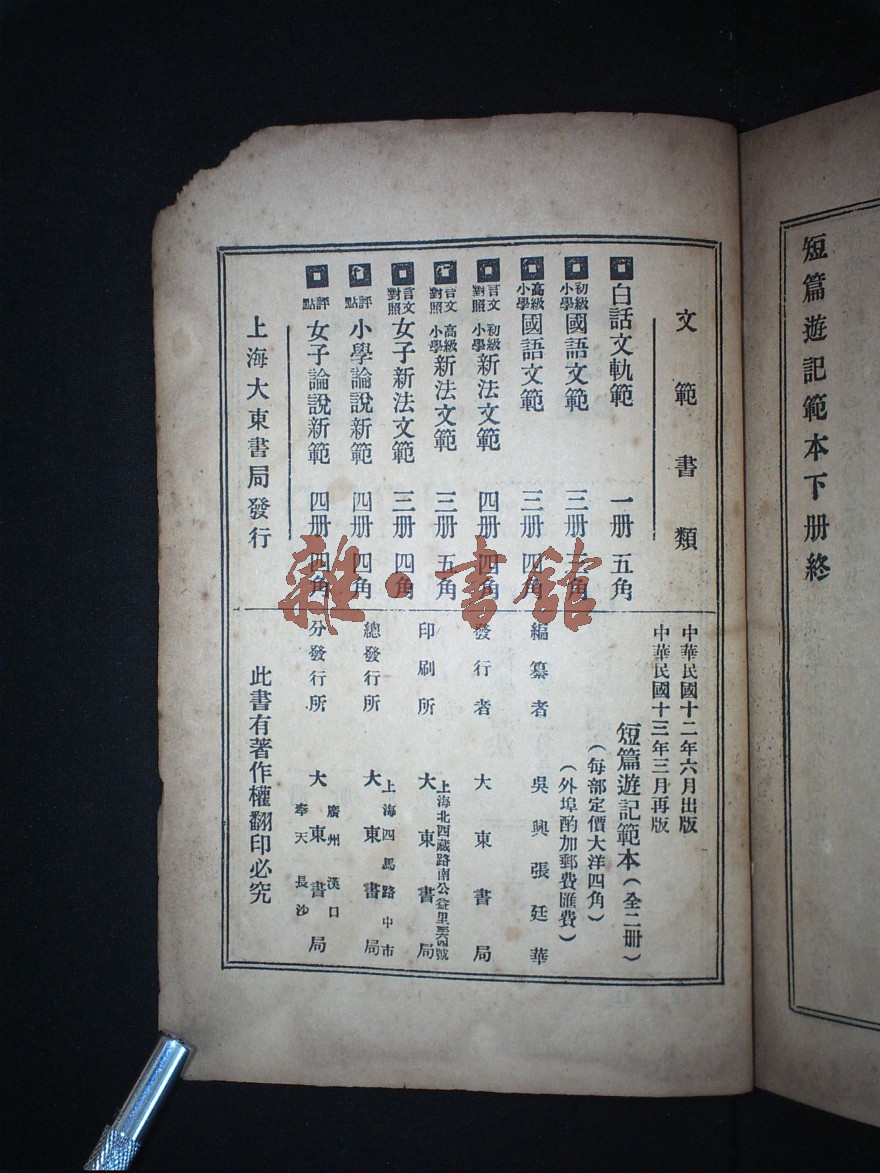 短篇遊記範本下册終
文範書類
白話文軌範 一册 五角
初級小學 國語文範 三册 三角
高級小學 國語文範 三册 四角
言文對照 初級小學 新法文範 四册 四角
言文對照 高級小學 新法文範 三册 五角
言文對照 女子新法文範 三册 四角
評點 小學論說新範 四册 四角
評點 女子論說新範 四册 四角
上海大東書局發行
中華民國十二年六月出版
中華民國十三年三月再版
短篇遊記範本(全二册)
(每部定價大洋四角)
(外埠酌加郵費匯費)
編纂者 吳興張廷華
發行者 大東書局
印刷所 上海北西藏路南公益里 號 大東書局
總發行所 上海四馬路中市 大東書局
分發行所 廣州 漢口 奉天 長沙 大東書局
此書有著作權翻印必究
雜·書館